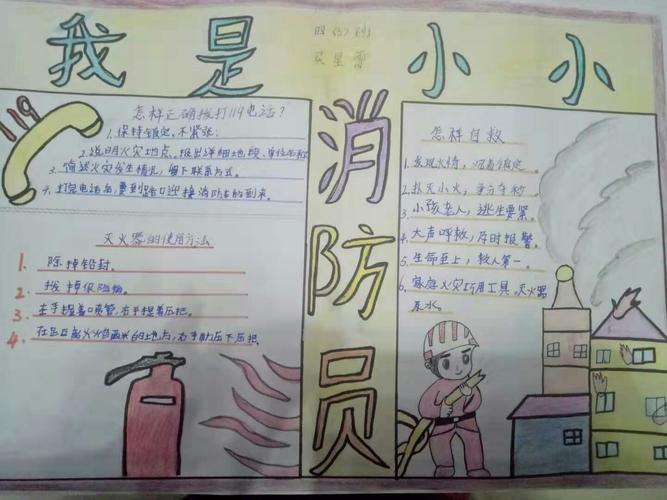 我是小小
四(5)班
119
消防员
怎样正确拨打119电话?
1、保持镇定,不紧张;
2、说明火灾地点,报出详细地段、单位名称
3、简述火灾发生情况,留下联系方式。
4、打完电话后,要到路口迎接消防车的到来。
灭火器的使用方法
1、除掉铅封。
2、拔掉保险销。
3、左手握着喷管,右手提着压把。
4、在距离火焰两米的地点,右手用力压下压把。
怎样自救
1、发现火情,沉着镇定。
2、扑灭小火,争分夺秒。
3、小孩老人,逃生要紧。
4、大声呼救,及时报警。
5、生命至上,救人第一。
6、家庭火灾巧用工具,灭火器
泵水。